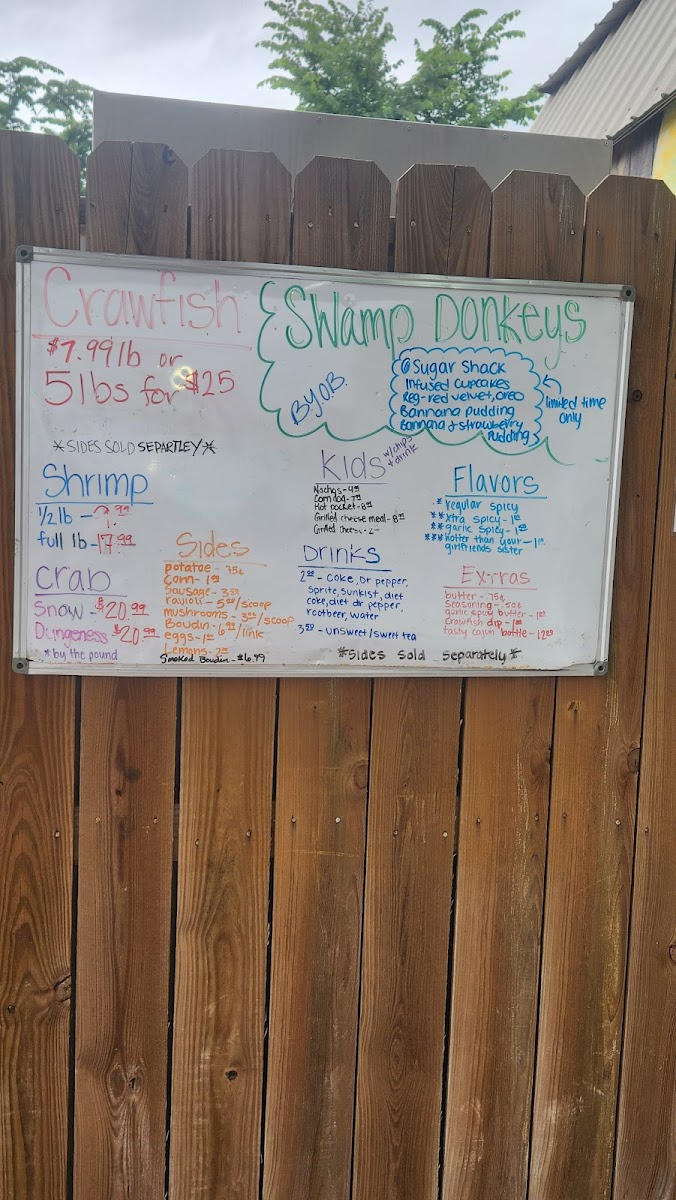 Crawfish
$7.99 lb or
5lbs for $25
*SIDES SOLD SEPARTLEY*
SWAMP DONKEYS
BYOB
@Sugar Shack
Infused cupcakes
Reg-red velvet, oreo
Bannana pudding
Bannana & strawberry
pudding
limited time
only
Shrimp
1/2 lb -
full lb - 17.99
Crab
Snow - $20.99
Dungeness $20.99
*by the pound
Sides
potatoe - 75¢
Corn - 1.00
Sausage - 3.50
ravioli - 5.00/scoop
mushrooms - 3.50/scoop
Boudin - 6.99/link
eggs - 1.00
Lemons -
Smoked Boudin - $6.99
Kids w/chips & drink
Nachos -
Corn dog -
Hot pocket -
Grilled cheese meal -
Grilled cheese -
Drinks
2.00 - coke, Dr pepper,
sprite, sunkist, diet
coke, diet dr pepper,
rootbeer, water
3.50 - unsweet/sweet tea
Flavors
* regular spicy
** xtra spicy - 1.00
** garlic spicy - 1.00
*** hotter than your - 1.00
girlfriends sister
Extras
butter - 75¢
seasoning - 50¢
garlic spicy butter - 1.00
crawfish dip - 1.00
tasty cajun bottle - 12.00
*Sides sold separately*